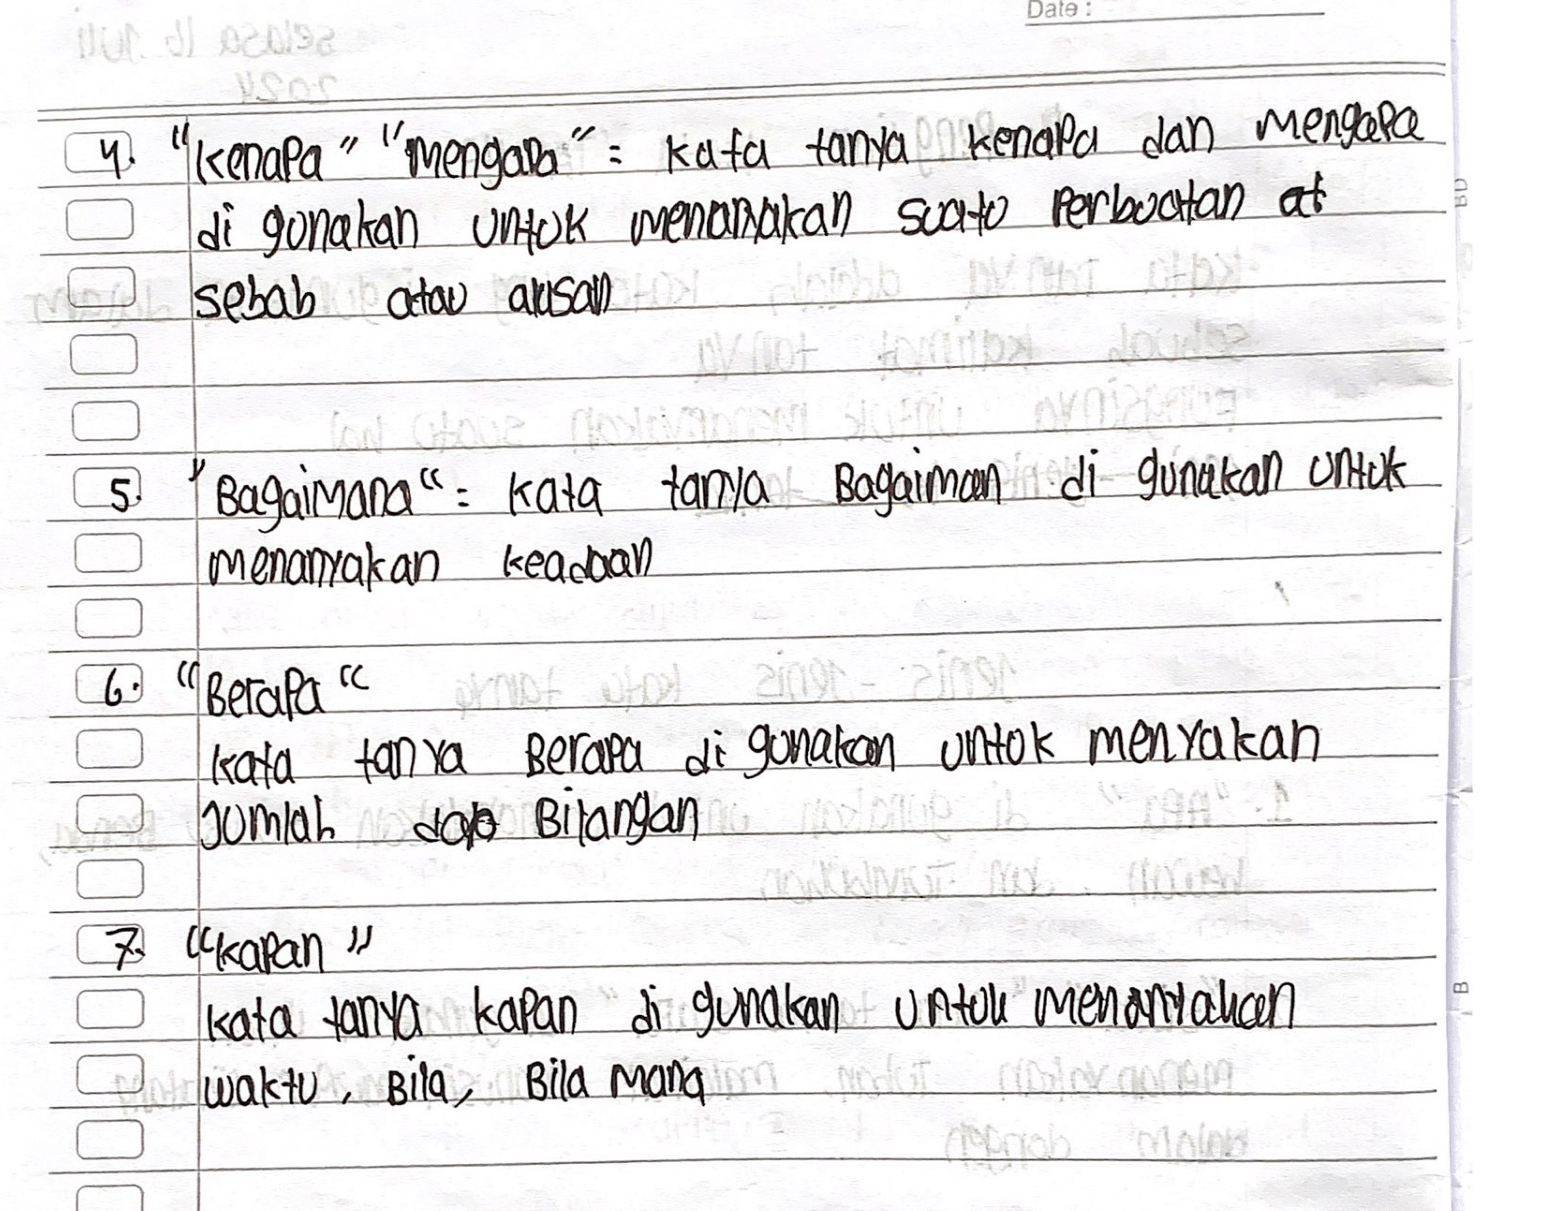 Date :
4. "Kenapa" "Mengapa" = kata tanya kenapa dan mengapa
di gunakan untuk menanyakan suatu perbuatan at
sebab atau alasan
5. "Bagaimana" = kata tanya Bagaiman di gunakan untuk
menanyakan keadaan
6. "Berapa"
kata tanya Berapa di gunakan untuk menyakan
Jumlah dan Bilangan
7. "Kapan"
kata tanya kapan di gunakan untuk menanyakan
waktu, Bila, Bila mana